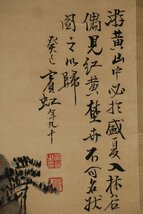 游黄山中必於盛夏入林谷
偶見紅黄蘷卉不可名狀
圖之以歸
癸巳賓虹年九十